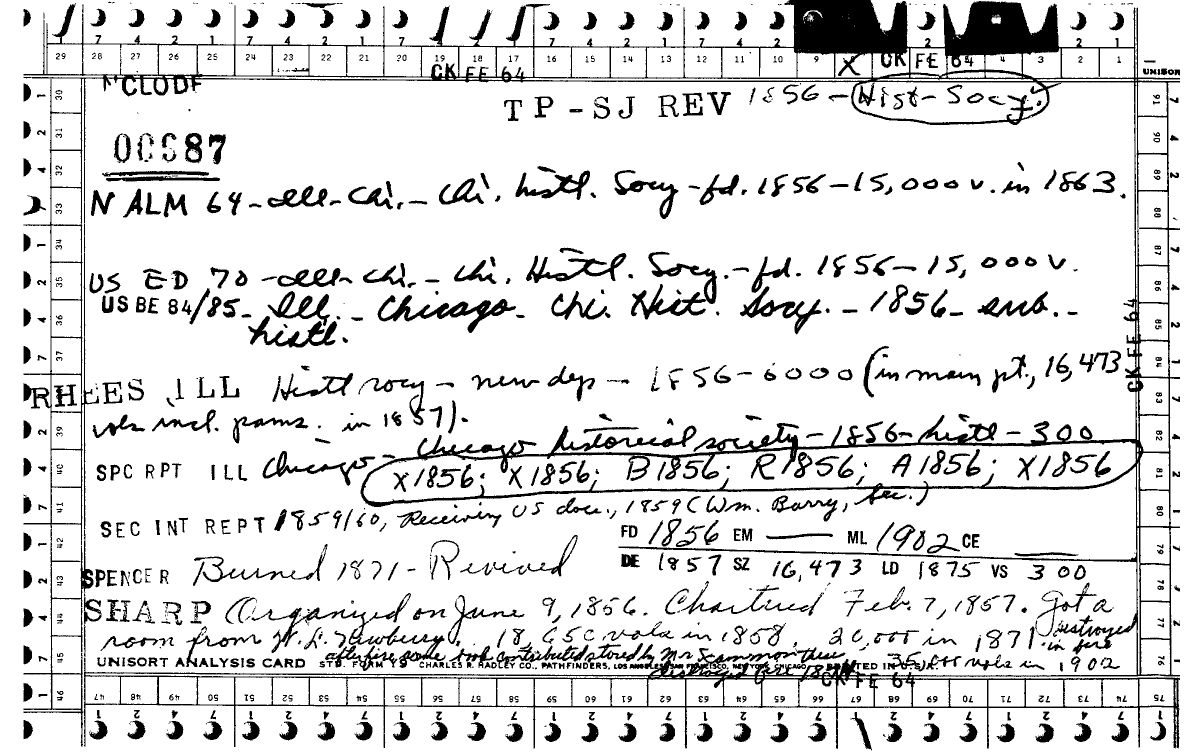 29 28 27 26 25 24 23 22 21 20 19 18 17 16 15 14 13 12 11 10 9 4 3 2 1
CK FE 64 X CK FE 64
UNISOR
TP-SJ REV 1856-Hist-Socy.
00687
N ALM 64-Ill-Chi.- Chi. histl. Socy-fd. 1856-15,000 v. in 1863.
US ED 70-Ill-Chi.- Chi. Histl. Socy.-fd. 1856-15,000 v.
US BE 84/85- Ill.- Chicago- Chi. Hist. Socy.-1856-sub.-
histl.
CK FE 64
RHEES ILL Histl socy- new dep- 1856-6000 (in main pt., 16,473
vols incl. pams. in 1857).
Chicago historical society-1856-histl-300
SPC RPT ILL Chicago-
X1856; X1856; B1856; R1856; A1856; X1856
SEC INT REPT 1859/60, Receiving US docs., 1859 (Wm. Barry, Sec.)
FD 1856 EM — ML 1902 CE —
DE 1857 SZ 16,473 LD 1875 VS 300
SPENCER Burned 1871-Revived
SHARP Organized on June 9, 1856. Chartered Feb. 7, 1857. Got a
room from W. L. Newberry. vols in 1858. in 1871 destroyed in fire
after fire some contributed stored by Mr Scammon
destroyed fire vols in 1902
UNISORT ANALYSIS CARD FORM Y9 CHARLES R. HADLEY CO., PATHFINDERS, LOS ANGELES, SAN FRANCISCO, NEW YORK, CHICAGO PRINTED IN U.S.A.
CK FE 64
46 47 48 49 50 51 52 53 54 55 56 57 58 59 60 61 62 63 64 65 66 67 68 69 70 71 72 73 74 75